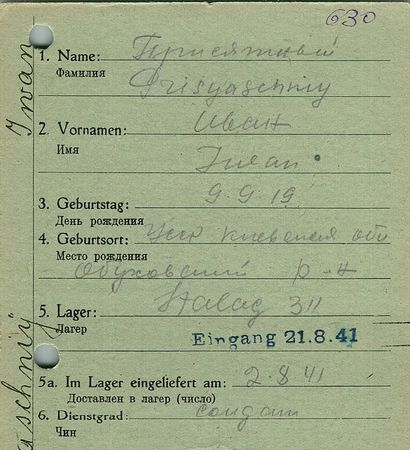 630
1. Name: Присяжный
Фамилия
Prisyaschniy
2. Vornamen: Иван
Имя
Iwan
3. Geburtstag: 9.9.19
День рождения
4. Geburtsort: Усср Киевская обл
Место рождения
Обуховский р-н
5. Lager: Stalag 311
Лагер
Eingang 21.8.41
5a. Im Lager eingeliefert am: 2.8.41
Доставлен в лагер (число)
6. Dienstgrad: солдат
Чин
Iwan
aschniy